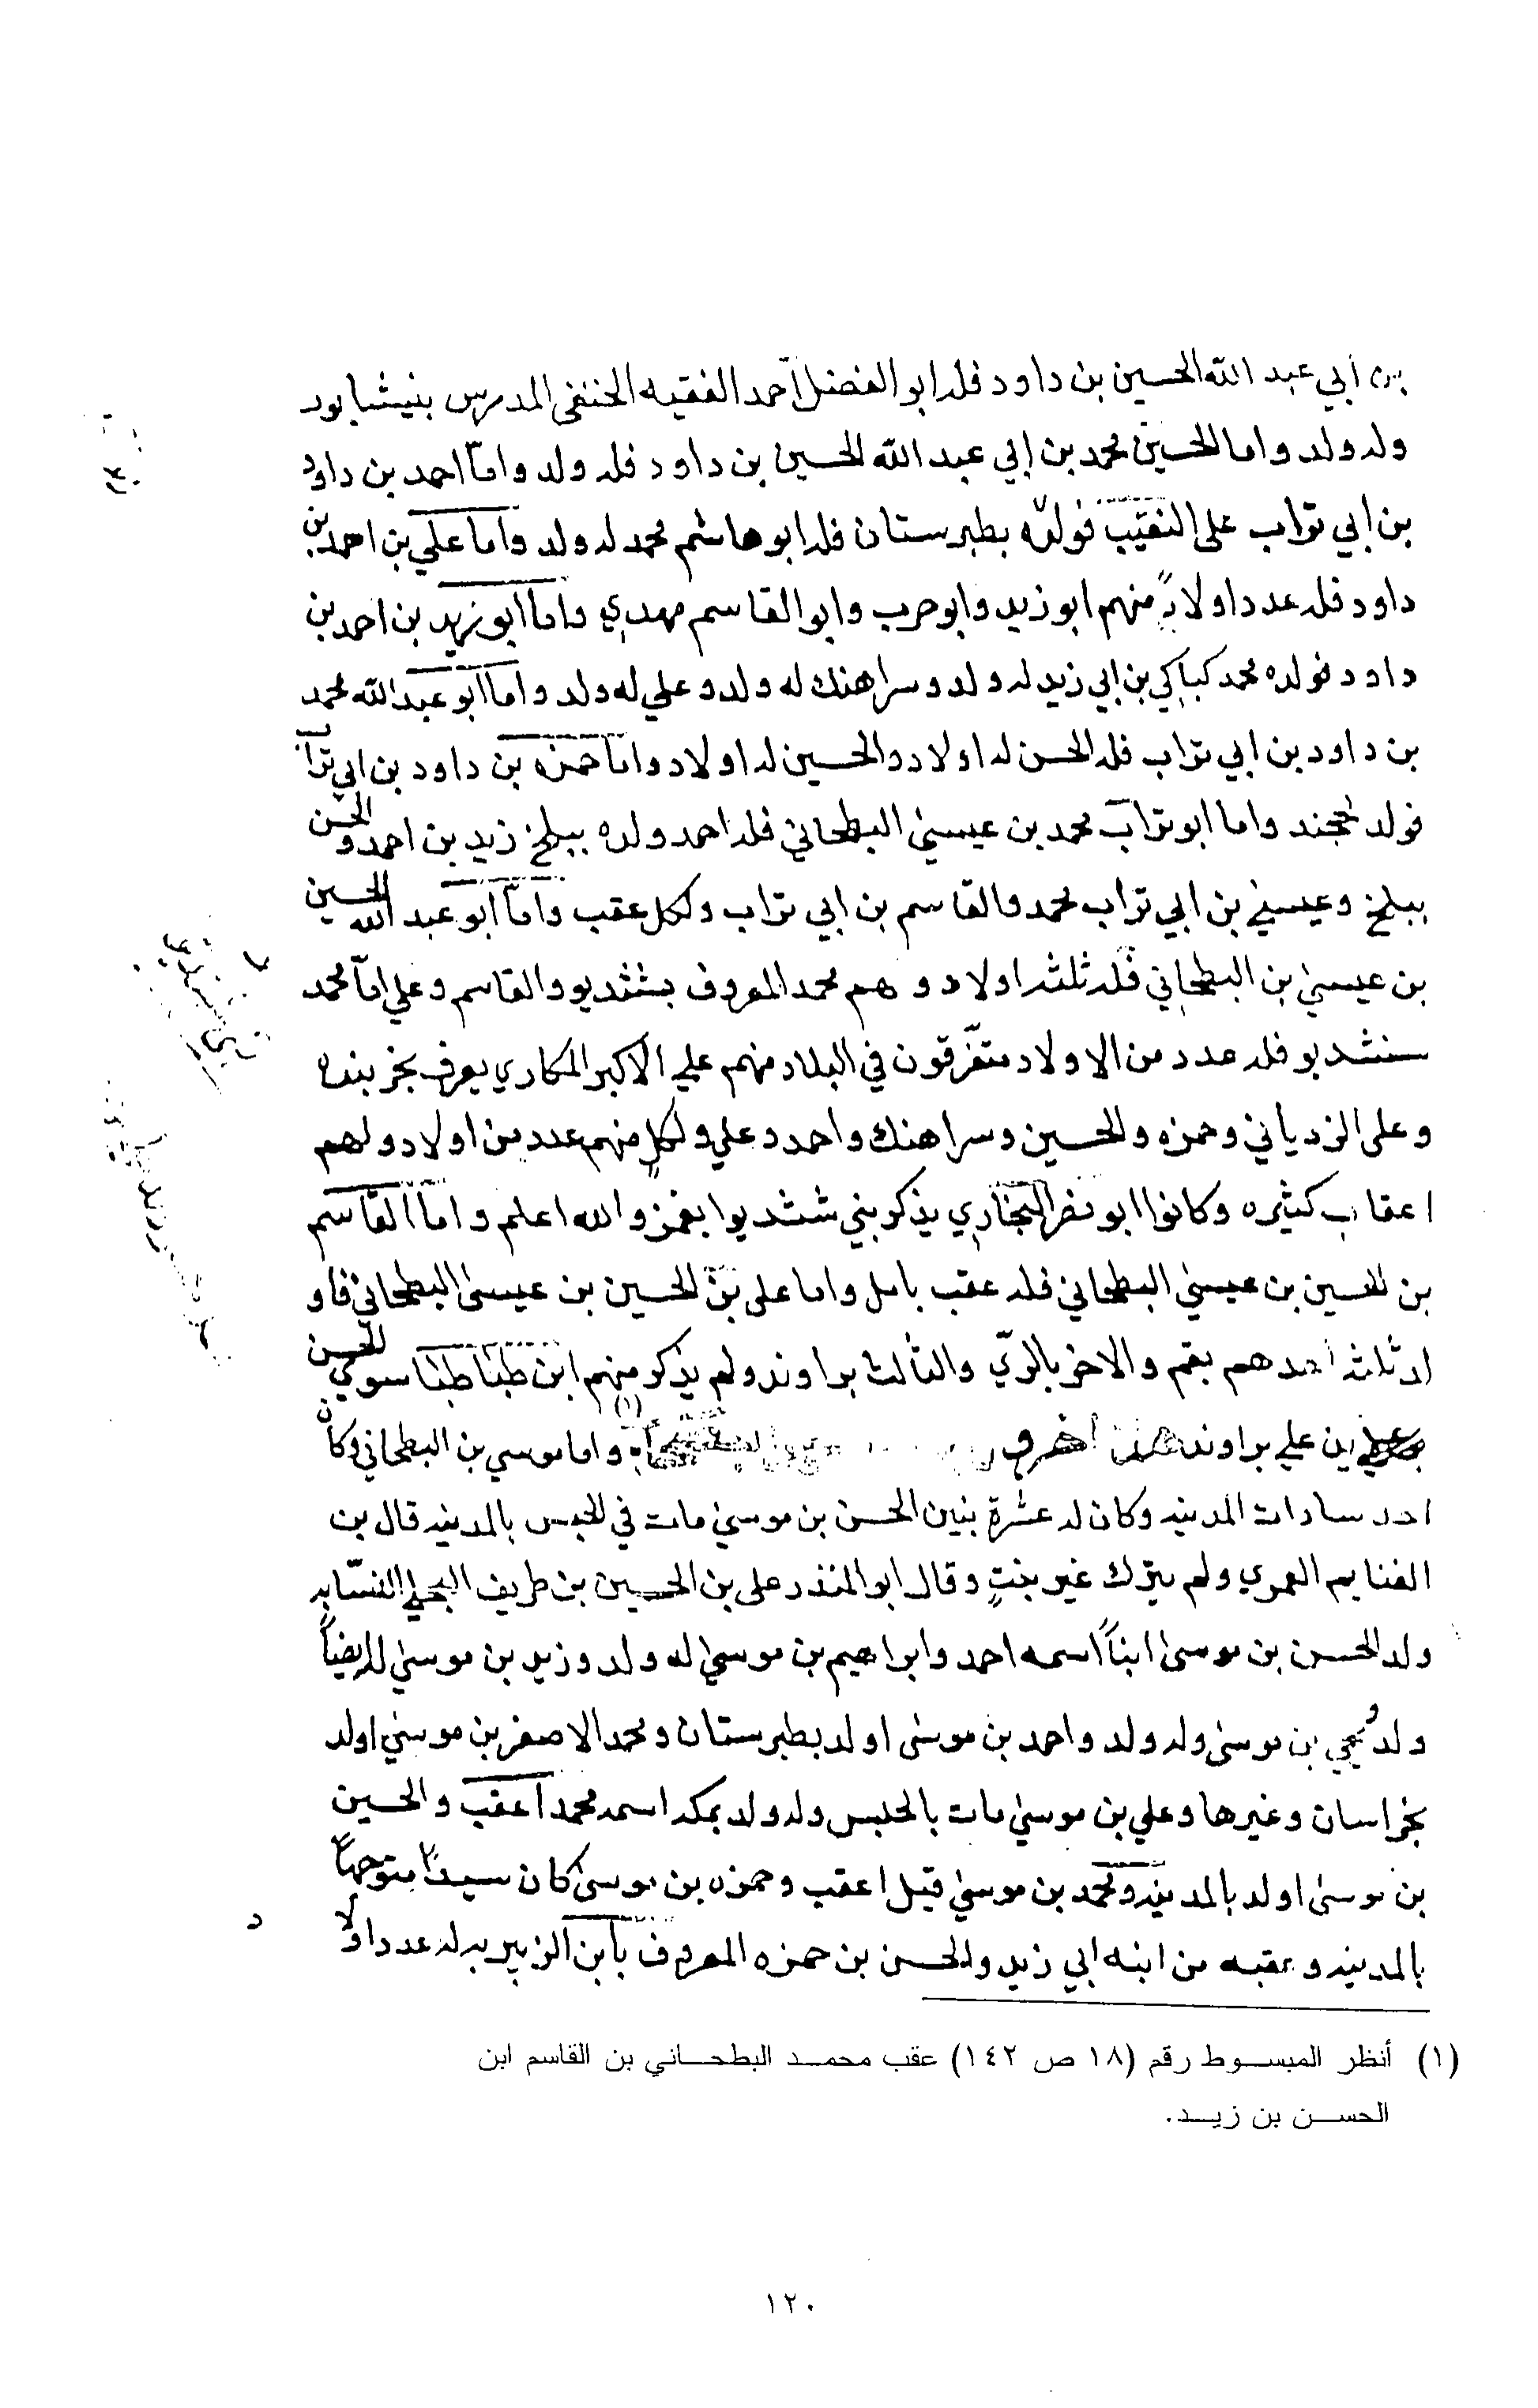 بن ابي عبد الله الحسين بن داود فله ابو الفضل احمد الفقيه الحنفى المدرس بنيشابور
وله ولد واما الحسين محمد بن ابي عبد الله الحسين بن داود فله ولد واما احمد بن داود
بن ابي تراب على النقيب فولده بطبرستان فله ابو هاشم محمد له ولد واما علي بن احمد بن
داود فله عدد اولاد منهم ابو زيد وابو حرب وابو القاسم مهدي واما ابو زيد بن احمد بن
داود فولده محمد كباكي بن ابي زيد له ولد وسراهنك له ولد وعلي له ولد واما ابو عبد الله محمد
بن داود بن ابي تراب فله الحسن له اولاد والحسين له اولاد واما حمزه بن داود بن ابي تراب
فولد بخجند واما ابو تراب محمد بن عيسى البطحاني فله احمد ولده ببلخ زيد بن احمد والحسن
ببلخ وعيسى بن ابي تراب محمد والقاسم بن ابي تراب ولكل عقب واما ابو عبد الله الحسين
بن عيسى بن البطحاني فله ثلثه اولاد وهم محمد المعروف بششديو والقاسم وعلي اما محمد
ششديو فله عدد من الاولاد متفرقون في البلاد منهم علي الاكبر المكاري يعرف بخربنده
وعلى الزدياني وحمزه والحسين وسراهنك واحمد وعلي ولكل منهم عدد من اولاد ولهم
اعقاب كثيره وكانوا ابو نصر البخاري يذكر بني ششديوا بغمز والله اعلم واما القاسم
بن الحسين بن عيسى البطحاني فله عقب بامل واما على بن الحسين بن عيسى البطحاني فاو
لاد ثلثه احدهم بقم والاخر بالري والثالث براوند ولم يذكر منهم ابن طباطبا سوى الحسن
بن علي براوند هذا اخره واما موسى بن البطحاني وكان
احد سادات المدينه وكان له عشرة بنين الحسن بن موسى مات في الحبس بالمدينه قال بن
الغنايم العمري ولم يترك غير بنت وقال ابو المنذر على بن الحسين بن طريف البجلي النسابه
ولد الحسن بن موسى ابنا اسمه احمد وابراهيم بن موسى له ولد وزيد بن موسى له ايضا
ولد ويحيي بن موسى وله ولد واحمد بن موسى اولد بطبرستان ومحمد الاصغر بن موسى اولد
بخراسان وغيرها وعلي بن موسى مات بالحبس وله ولد بمكه اسمه محمد اعقب والحسين
بن موسى اولد بالمدينه ومحمد بن موسى قيل اعقب وحمزه بن موسى كان سيدا متوجها
بالمدينه وعقبه من ابنه ابي زيد والحسن بن حمزه المعروف بابن الزبيريه له عدد اولا
د
(١) أنظر المبسوط رقم (١٨ ص ١٤٢) عقب محمد البطحاني بن القاسم ابن
الحسن بن زيد.
١٢٠